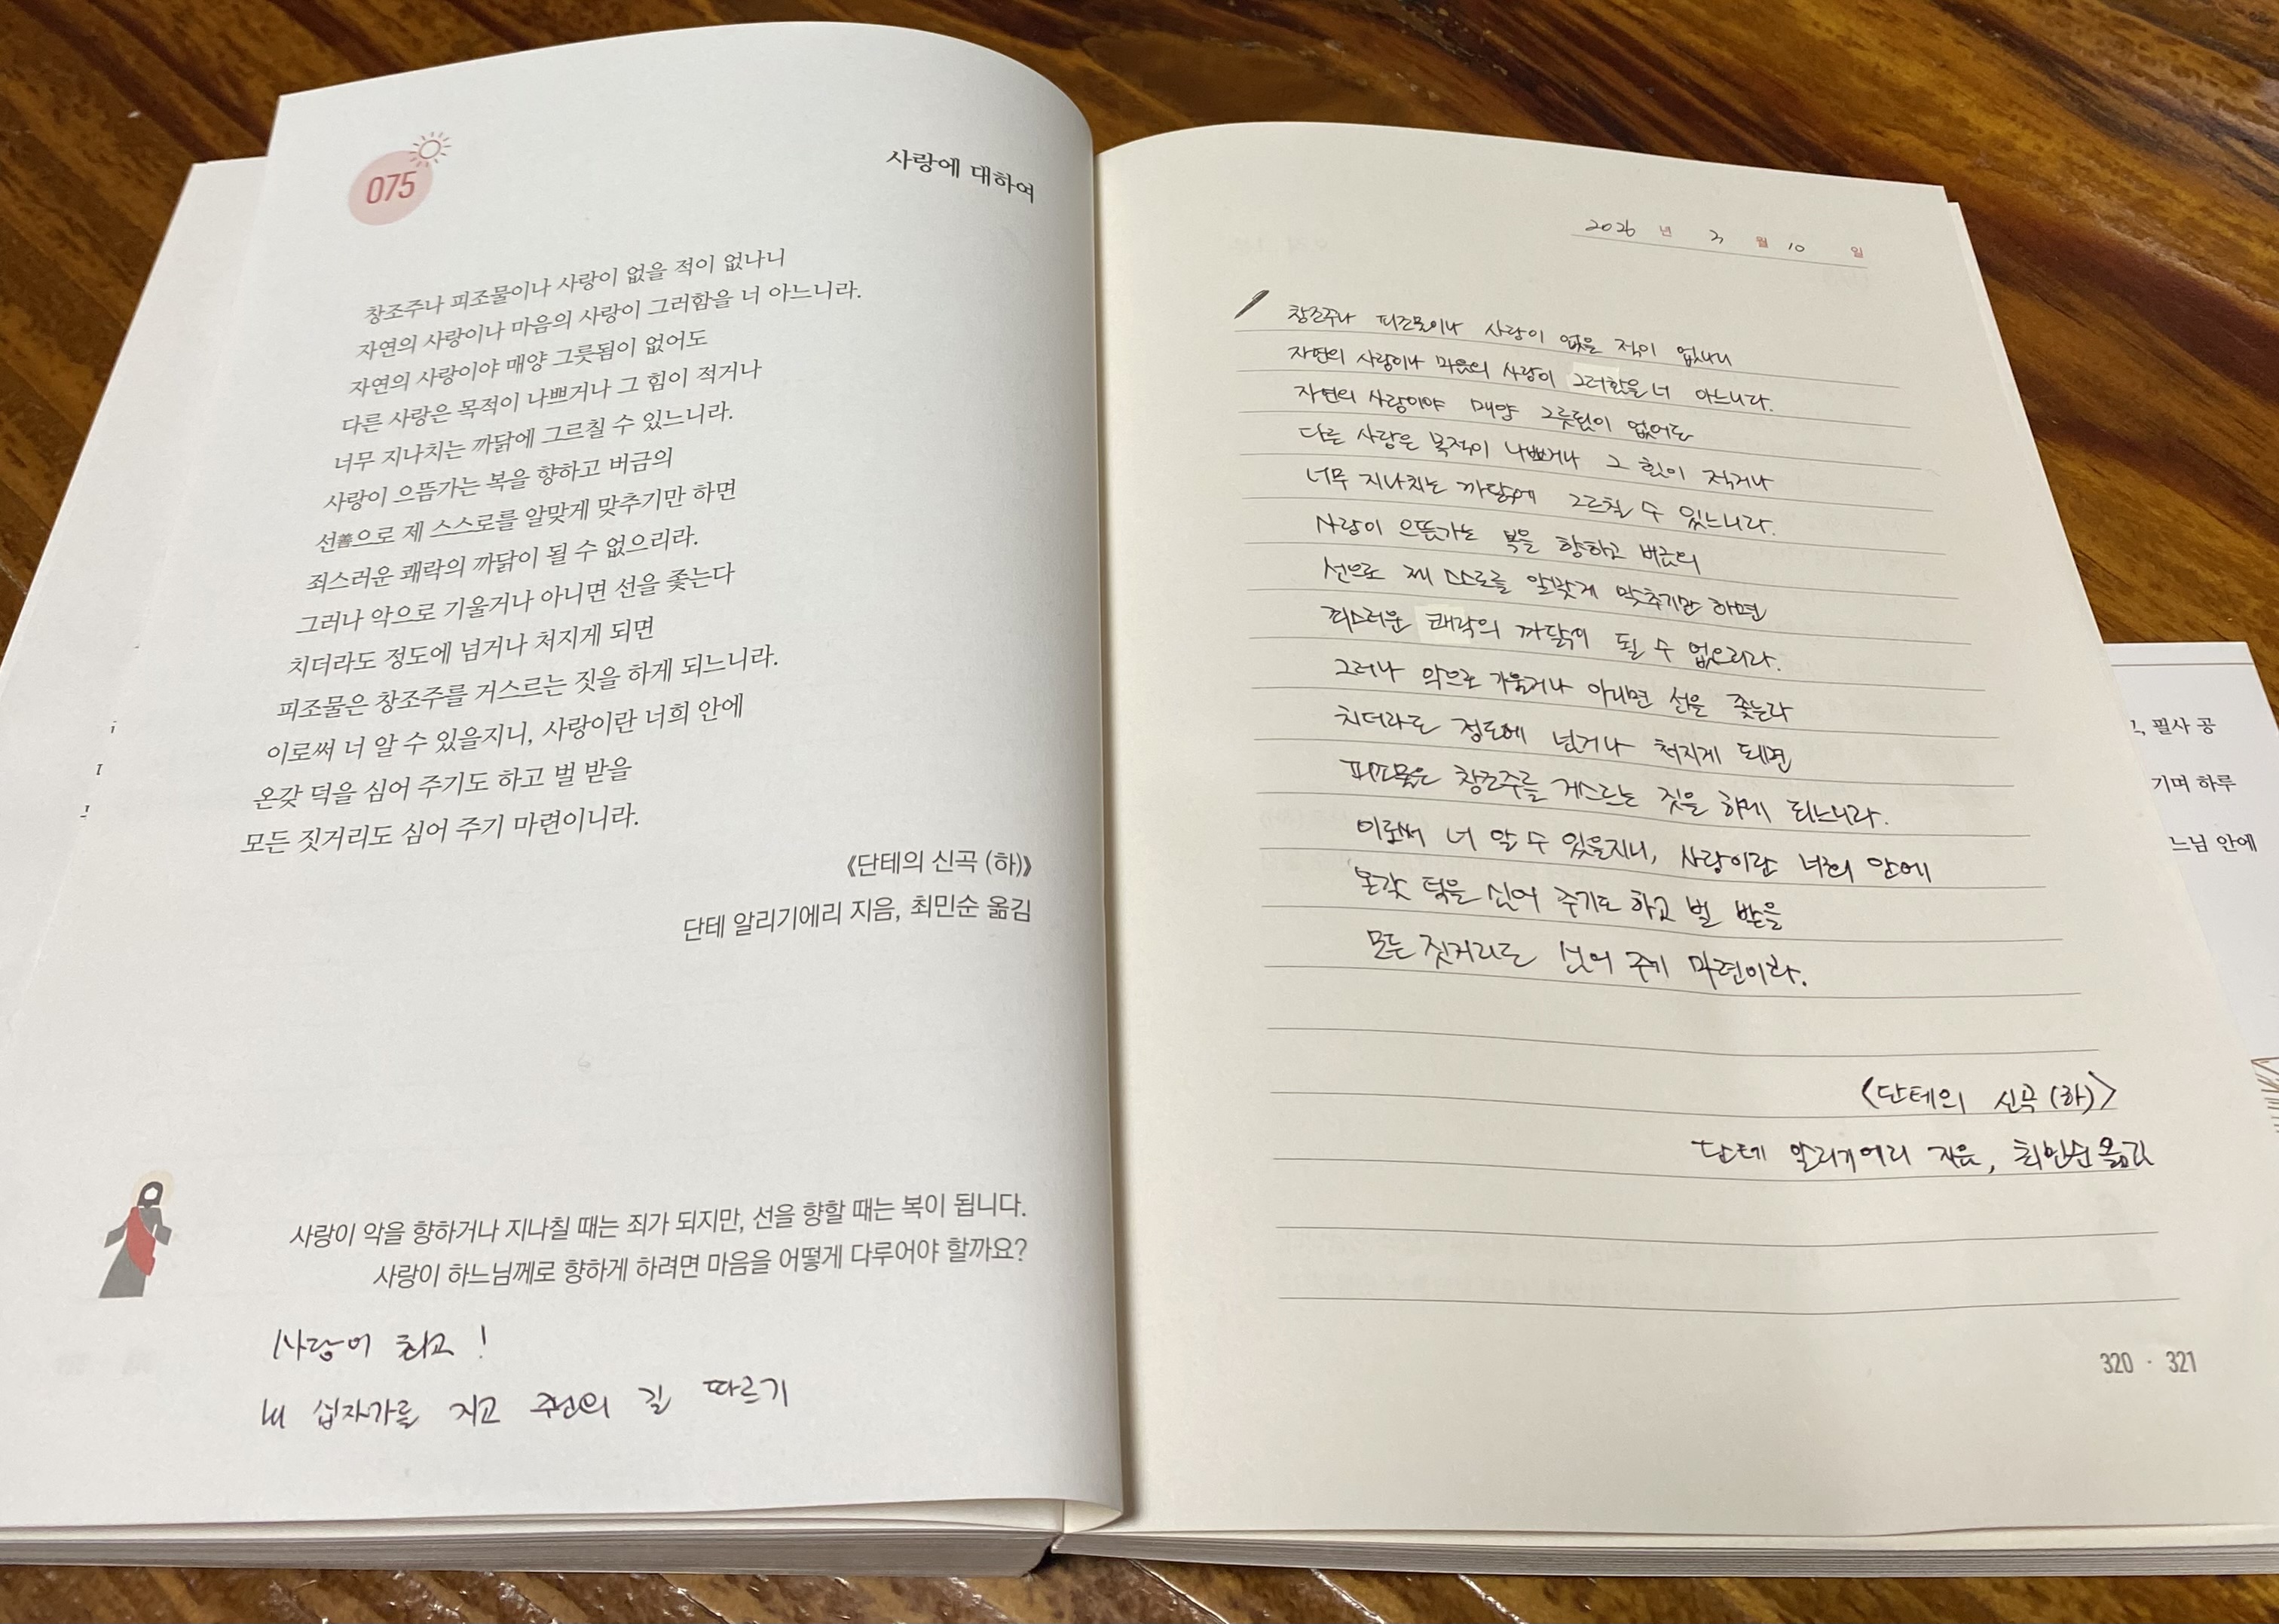 075
사랑에 대하여
창조주나 피조물이나 사랑이 없을 적이 없나니
자연의 사랑이나 마음의 사랑이 그러함을 너 아느니라.
자연의 사랑이야 매양 그릇됨이 없어도
다른 사랑은 목적이 나쁘거나 그 힘이 적거나
너무 지나치는 까닭에 그르칠 수 있느니라.
사랑이 으뜸가는 복을 향하고 버금의
선善으로 제 스스로를 알맞게 맞추기만 하면
죄스러운 쾌락의 까닭이 될 수 없으리라.
그러나 악으로 기울거나 아니면 선을 좇는다
치더라도 정도에 넘거나 처지게 되면
피조물은 창조주를 거스르는 짓을 하게 되느니라.
이로써 너 알 수 있을지니, 사랑이란 너희 안에
온갖 덕을 심어 주기도 하고 벌 받을
모든 짓거리도 심어 주기 마련이니라.
《단테의 신곡 (하)》
단테 알리기에리 지음, 최민순 옮김
사랑이 악을 향하거나 지나칠 때는 죄가 되지만, 선을 향할 때는 복이 됩니다.
사랑이 하느님께로 향하게 하려면 마음을 어떻게 다루어야 할까요?
사랑이 최고!
내 십자가를 지고 주님의 길 따르기
2026 년 3 월 10 일
창조주나 피조물이나 사랑이 없을 적이 없나니
자연의 사랑이나 마음의 사랑이 그러함을 너 아느니라.
자연의 사랑이야 매양 그릇됨이 없어도
다른 사랑은 목적이 나쁘거나 그 힘이 적거나
너무 지나치는 까닭에 그르칠 수 있느니라.
사랑이 으뜸가는 복을 향하고 버금의
선으로 제 스스로를 알맞게 맞추기만 하면
죄스러운 쾌락의 까닭이 될 수 없으리라.
그러나 악으로 기울거나 아니면 선을 좇는다
치더라도 정도에 넘거나 처지게 되면
피조물은 창조주를 게스르는 짓을 하게 되느니라.
이로써 너 알 수 있을지니, 사랑이란 너희 안에
온갖 덕을 심어 주기도 하고 벌 받을
모든 짓거리도 심어 주기 마련이라.
<단테의 신곡 (하)>
단테 알리기에리 지음, 최민순 옮김
320 · 321
필사 공
기며 하루
느님 안에